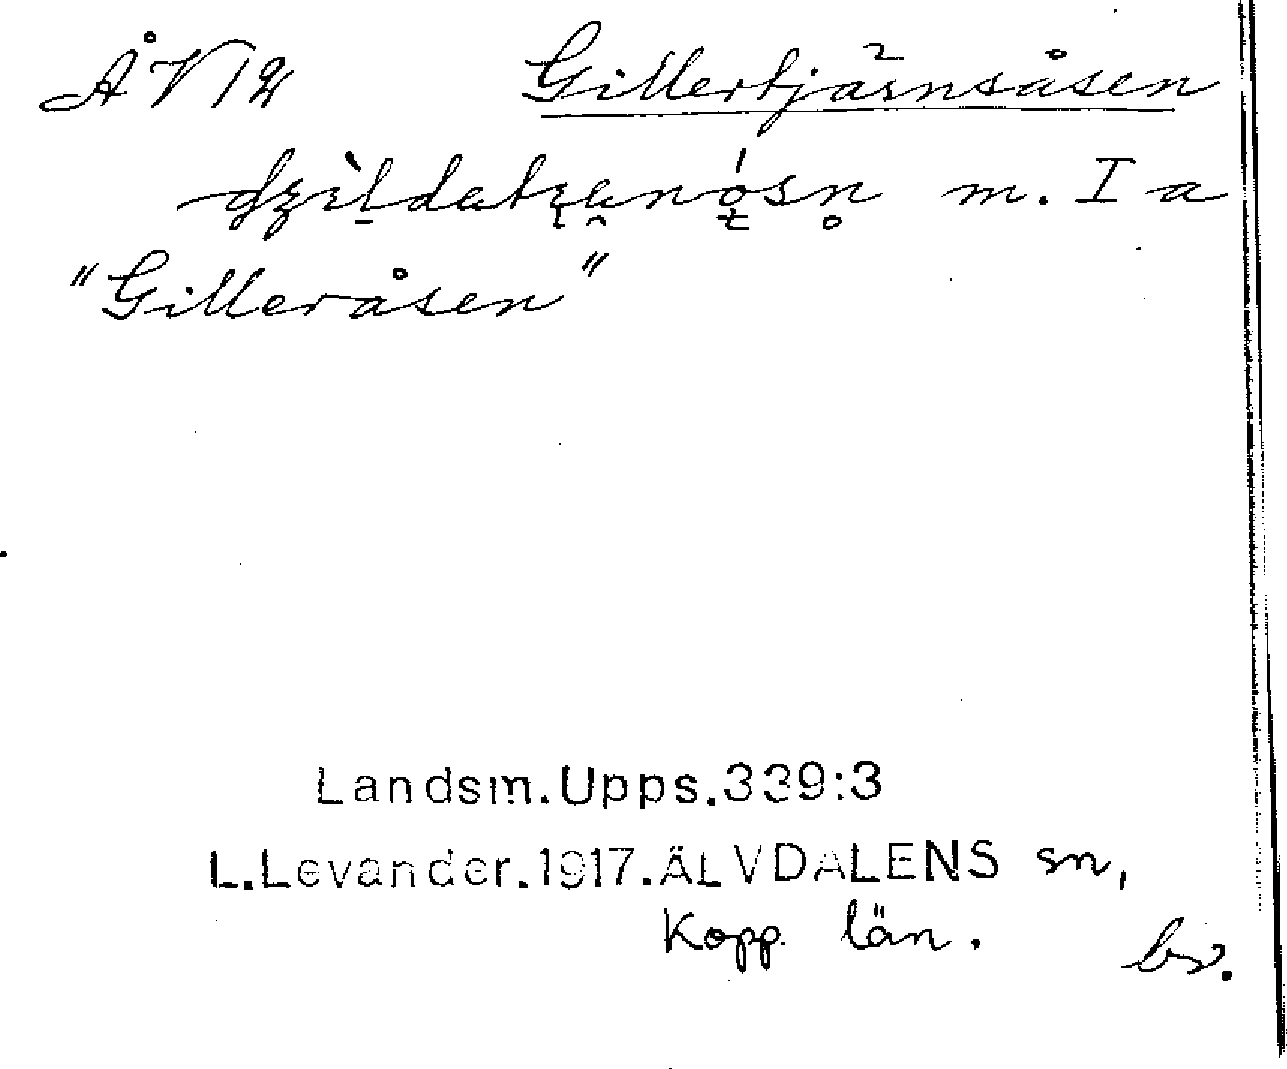 ÅV 12 Gillertjärnsåsen
m. I a
"Gilleråsen"
Landsm. Upps. 339:3
L. Levander. 1917. ÄLVDALENS sn,
Kopp. län.
bs.